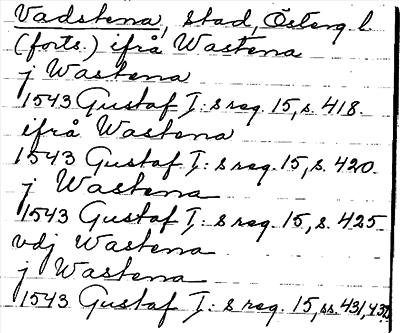 Vadstena, stad, Österg. l.
(forts.) ifrå Wastena
j Wastena
1543 Gustaf I:s reg. 15, s. 418.
ifrå Wastena
1543 Gustaf I:s reg. 15, s. 420.
j Wastena
1543 Gustaf I:s reg. 15, s. 425
vdj Wastena
j Wastena
1543 Gustaf I:s reg. 15, ss. 431, 432